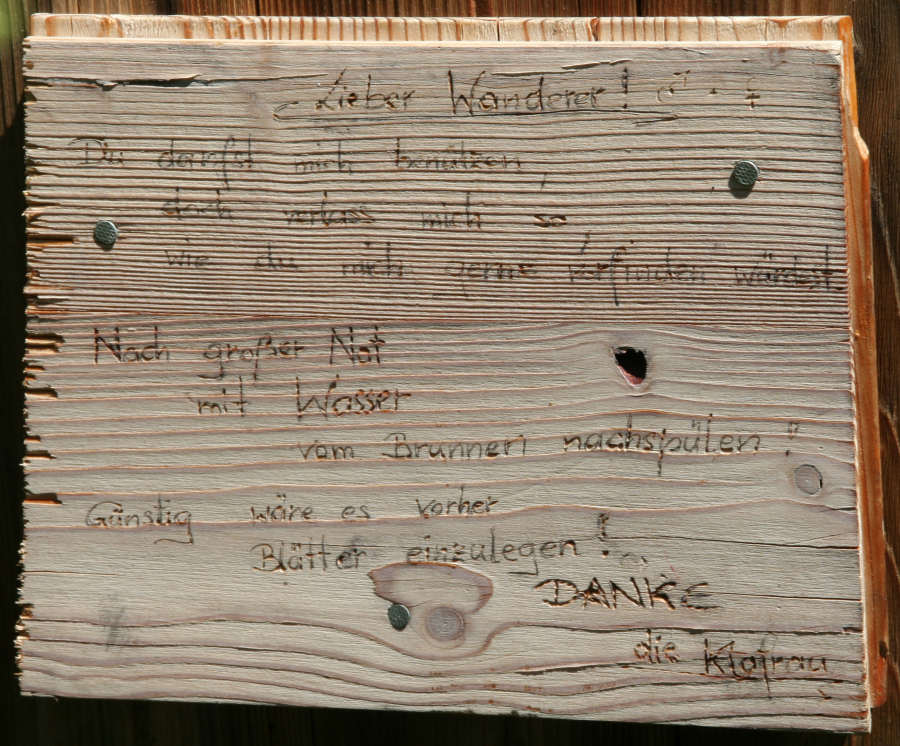 Lieber Wanderer! ♂ . ♀
Du darfst mich benützen,
doch verlass mich so,
wie du mich gerne vorfinden würdest.
Nach großer Not
mit Wasser
vom Brunnen nachspülen!
Günstig wäre es vorher
Blätter einzulegen!
DANKE
die Klofrau